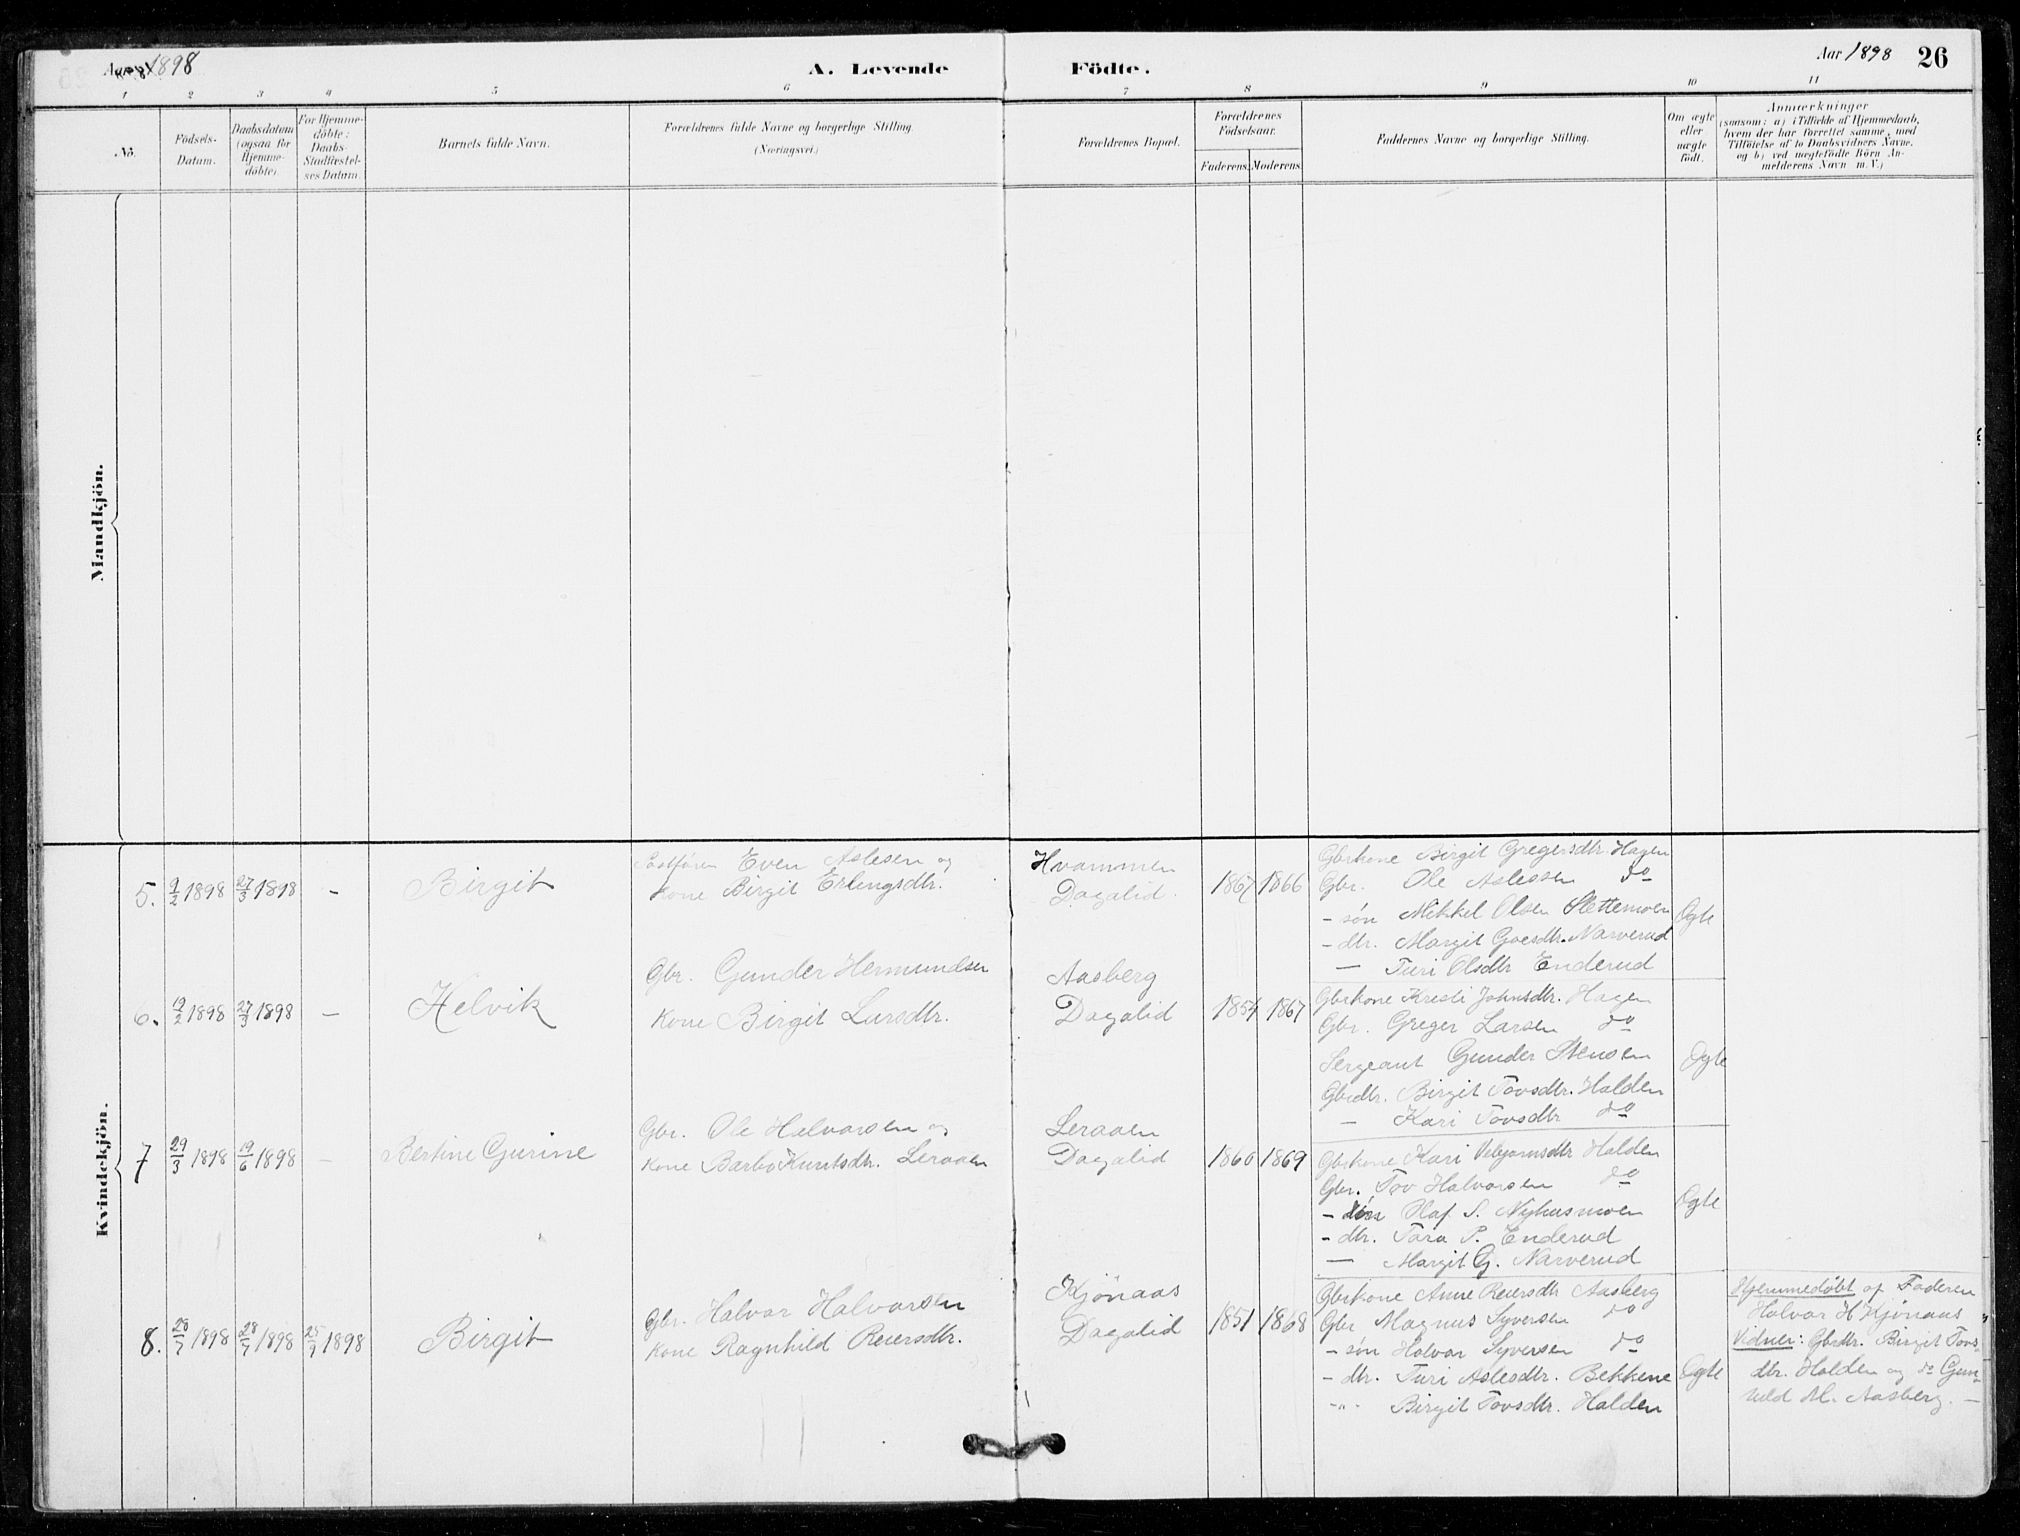 Aar 1898
A. Levende
Födte.
Aar 1898
26
1 2 3 4 5 6 7 8 9 10 11
No.
Födsels-
Datum.
Daabsdatum
(ogsaa for
Hjemme-
döbte).
For Hjemme-
döbte:
Daabs-
Stadfæstel-
ses Datum.
Barnets fulde Navn.
Forældrenes fulde Navne og borgerlige Stilling.
(Næringsvei.)
Forældrenes Bopæl.
Forældrenes
Födselsaar.
Faderens. Moderens.
Faddernes Navne og borgerlige Stilling.
Om ægte
eller
uægte
födt.
Anmærkninger
(saasom: a) i Tilfælde af Hjemmedaab,
hvem der har forrettet samme, med
Tilföielse af to Daabsvidners Navne.
og b) ved uægtefödte Börn An-
melderens Navn m. V.)
Mandkjön.
Kvindekjön.
5. 9/2 1898 27/3 1898 - Birgit
Even Aslesen og
Kone Birgit Erlingsdtr.
Hvammen
Dagalid.
1867 1866
Gbrkone Birgit Gregersdtr. Hagen
Gbr. Ole Aslessen do
- søn Mikkel Olsen Slettemoen
- dtr. Margit Goesdtr. Narverud
— Turi Olsdtr Enderud
Ægte
6. 19/2 1898 27/3 1898 — Helvik
Gbr. Gunder Hermundsen
Kone Birgit Larsdtr.
Aasberg
Dagalid
1854 1867
Gbrkone Kristi Johnsdtr. Hagen
Gbr. Greger Larsen do
Sergeant Gunder Stensen
Gbrdtr. Birgit Tovsdtr. Halden
— Kari Tovsdtr do
Ægte
7 29/3 1898 19/6 1898 - Bertine Gurine
Gbr. Ole Halvorsen og
Kone Barbo Knutsdtr. Leraaen
Leraaen
Dagalid
1860 1869
Gbrkone Kari Vebjørnsdtr Halden
Gbr. Tov Halvorsen do
- søn Olaf S. Nyhusmoen
- dtr. Tara P. Enderud
— Margit G. Narverud
Ægte
8. 28/7 1898 28/7 1898 25/9 1898 Birgit
Gbr. Halvor Halvorsen
Kone Ragnhild Reiersdtr.
Kjönaas
Dagalid
1851 1868
Gbrkone Anne Reiersdtr Aasberg
Gbr Magnus Syversen do
- søn Halvor Syversen do
- dtr. Turi Aslesdtr. Bekkene
-"- Birgit Tovsdtr. Halden
Ægte
Hjemmedøbt af Faderen
Halvor H Kjönaas
Vidner: Gbrdtr. Birgit Tovs-
dtr. Halden og do Gun-
hild M. Aasberg. —